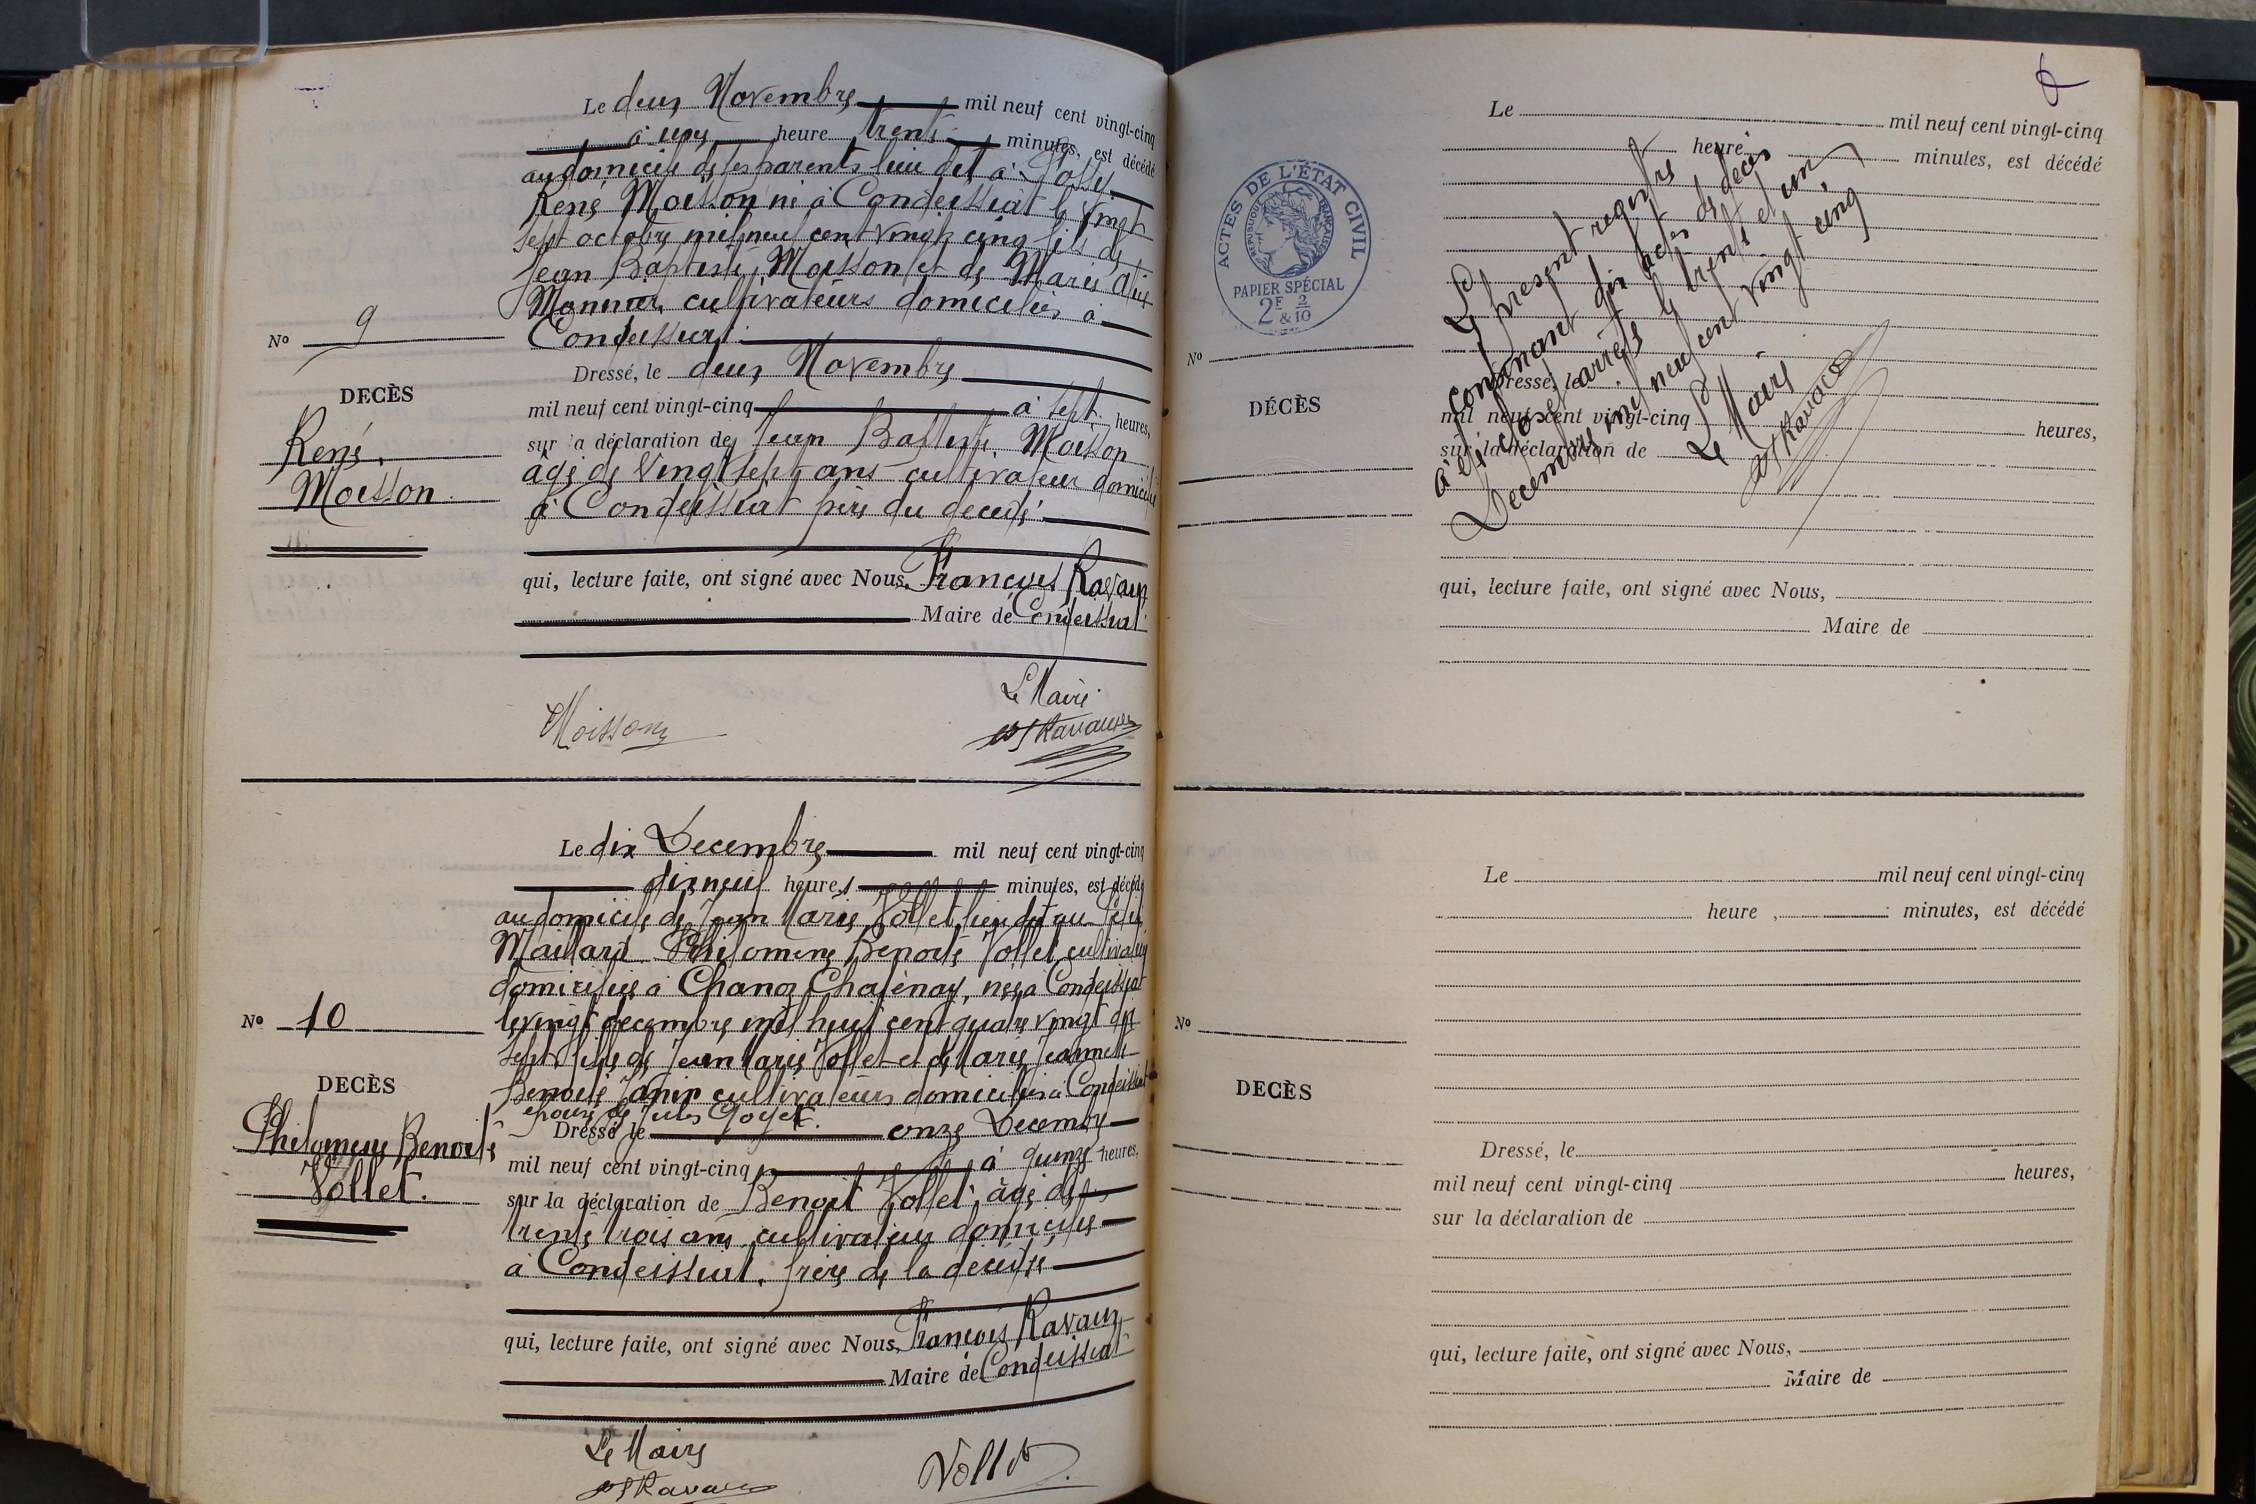 Le deux Novembre mil neuf cent vingt-cinq
à une heure trente minutes, est décédé
au domicile de ses parents lieu dit à
René Moisson né à Condeissiat le vingt
sept octobre mil neuf cent vingt cinq fils de
Jean Baptiste Moisson et de Marie Alix
Monnier cultivateurs domiciliés à
Condeissiat
Dressé, le deux Novembre
mil neuf cent vingt-cinq à sept heures,
sur la déclaration de Jean Batiste Moisson
âgé de vingt sept ans cultivateur domicilié
à Condeissiat père du décédé
qui, lecture faite, ont signé avec Nous, François Ravaux
Maire de Condeissiat
Le Maire
Moisson
Ravaux
No 9
DECÈS
René
Moisson
Le dix Decembre mil neuf cent vingt-cinq
dix neuf heures minutes, est décédé
au domicile de Jean Marie Vollet lieu dit au Petit
Maillard Philomène Benoite Vollet cultivateur
domiciliée à Chanoz Chatenay, née à Condeissiat
le vingt decembre mil huit cent quatre vingt dix
sept fille de Jean Marie Vollet et de Marie Jeannette
Benoite cultivateurs domiciliés à Condeissiat
épouse de Jules Goyet.
Dressé le onze Decembre
mil neuf cent vingt-cinq à quinze heures,
sur la déclaration de Benoit Vollet, âgé de
trente trois ans cultivateur domicilié
à Condeissiat, frère de la décédée
qui, lecture faite, ont signé avec Nous, François Ravaux
Maire de Condeissiat
Le Maire
Ravaux
Vollet
No 10
DECÈS
Philomene Benoite
Vollet.
6
Le mil neuf cent vingt-cinq
heure minutes, est décédé
ACTES DE L'ÉTAT CIVIL
RÉPUBLIQUE FRANÇAISE
PAPIER SPÉCIAL
2F & 2/10
Le présent registre
contenant dix actes de décès
a été clos et arrêté le trente et un
Decembre mil neuf cent vingt cinq
Le Maire
Ravaux
No
DÉCÈS
Dressé, le
mil neuf cent vingt-cinq heures,
sur la déclaration de
qui, lecture faite, ont signé avec Nous,
Maire de
Le mil neuf cent vingt-cinq
heure , minutes, est décédé
No
DECÈS
Dressé, le
mil neuf cent vingt-cinq heures,
sur la déclaration de
qui, lecture faite, ont signé avec Nous,
Maire de